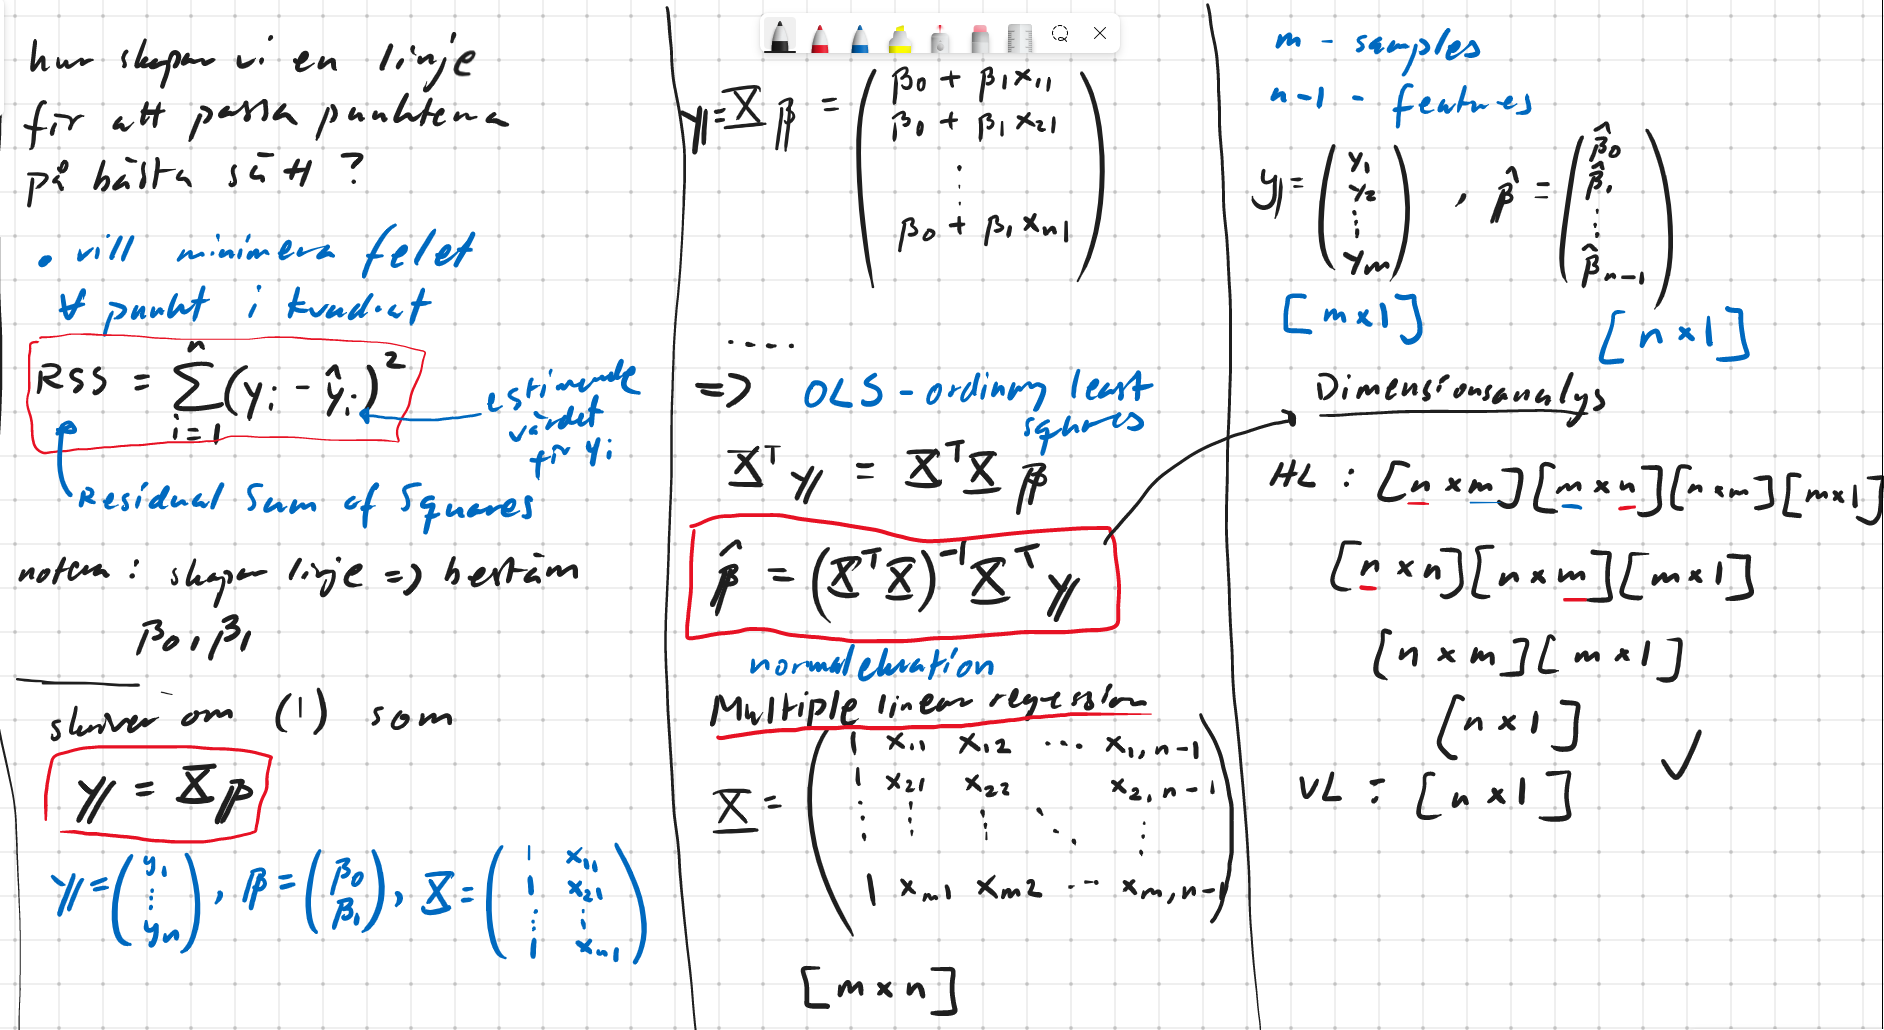 hur skapar vi en linje
för att passa punkterna
på bästa sätt ?
• vill minimera felet
∀ punkt i kvadrat
RSS = ∑_{i=1}^{n} (y_i - ŷ_i)²
estimerade
värdet
för y_i
Residual Sum of Squares
notera : skapar linje => bestäm
β₀, β₁
skriver om (1) som
y = X β
y = (y₁ ⋮ y_n), β = (β₀ β₁), X = (1 x₁₁ 1 x₂₁ ⋮ ⋮ 1 x_{n1})
y = X β = (β₀ + β₁ x₁₁
β₀ + β₁ x₂₁
⋮
β₀ + β₁ x_{n1})
.....
=> OLS - ordinary least
squares
X^T y = X^T X β
β̂ = (X^T X)^{-1} X^T y
normalekvation
Multiple linear regression
X = (1 x₁₁ x₁₂ ⋯ x_{1,n-1}
1 x₂₁ x₂₂ x_{2,n-1}
⋮ ⋮ ⋮ ⋱ ⋮
1 x_{m1} x_{m2} ⋯ x_{m,n-1})
[m × n]
m - samples
n-1 - features
y = (y₁ y₂ ⋮ y_m) , β̂ = (β̂₀ β̂₁ ⋮ β̂_{n-1})
[m × 1] [n × 1]
Dimensionsanalys
HL : [n × m][m × n][n × m][m × 1]
[n × n][n × m][m × 1]
[n × m][m × 1]
[n × 1] ✓
VL : [n × 1]